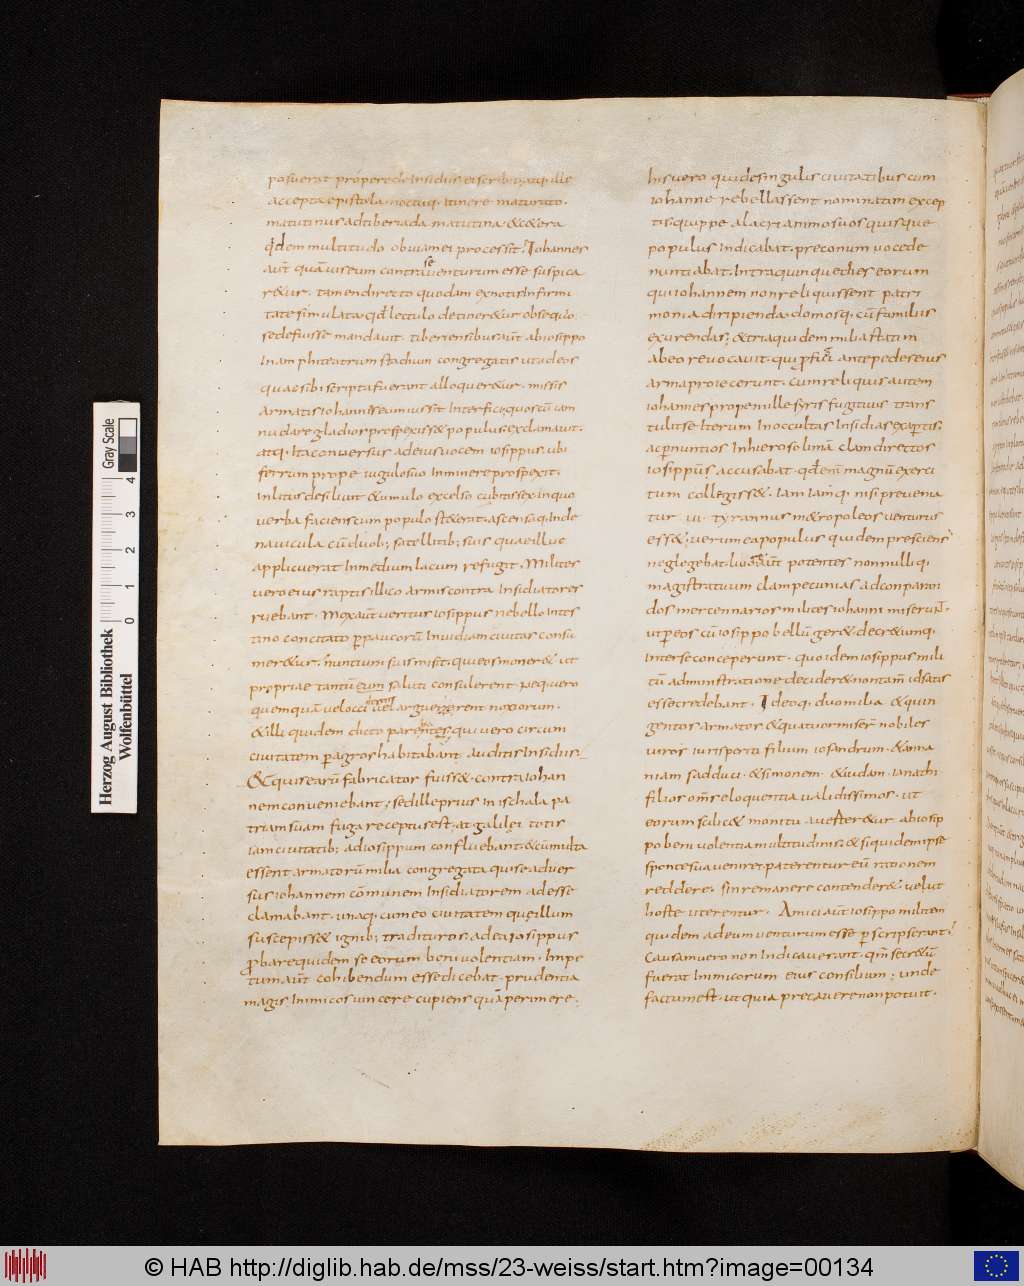 posuerat propere de insidiis ei scribit, atq; ille
accepta epistola noctuq; itinere maturato.
matutinus ad tiberiada matutina. & c&era
qđem multitudo obuiam ei processit; Iohannes
aūt quāuis eum contra se uenturum esse suspica
r&ur. tamen directo quodam ex notis infirmi
tate simulata qđ lectulo detiner&ur obsequio
se defuisse mandauit. tiberiensibus aūt ab iosippo
in amphiteatrum stadium congregatis ut de his
quae sibi scripta fuerant alloquer&ur. missis
armatis iohannis eum iussit interfici; quos cū iam
nudare gladios prospexiss& populus; exclamauit.
atq; ita conuersus ad eius uocem iosippus. ubi
ferrum prope iugulo suo inminere prospexit.
in litus desiliuit & tumulo excelso cubitis sex in quo
uerba faciens cum populo st&erat. ascensaq; inde
nauicula cū duob; satellitib; suis quae illuc
applicuerat in medium lacum refugit. Milites
uero eius raptis illico armis contra insidiatores
ruebant. Mox aūt ueritus iosippus ne bello intes
tino concitato p paucorū inuidiam ciuitas consu
mer&ur. nuntium suis misit. qui eos moner& ut
propriae tantū eum saluti consulerent neque uero
quemquā uel occiderent uel arguerent noxiorum.
& illi quidem dicto parentes; qui uero circum
ciuitatem p agros habitabant auditis insidiis.
& quis earū fabricator fuiss&. contra iohan
nem conueniebant; sed ille prius in ischala pa
triam suam fuga receptus est; at galilei totis
iam ciuitatib; ad iosippum confluebant; & cū multa
essent armatorū milia congregata quise aduer
sus iohannem cōmunem insidiatorem adesse
clamabant. unaq; cum eo ciuitatem que illum
suscepiss& ignib; tradituros. ad ea iosippus
probare quidem se eorum beniuolentiam. impe
tum aūt cohibendum esse dicebat. prudentia
magis inimicos uincere cupiens quā perimere.
his uero qui de singulis ciuitatibus cum
iohanne rebellassent nominatim excep
tis. quippe alacri animo suos quisque
populus indicabat. preconum uoce de
nuntiabat. Intra quinque dies eorum
qui iohannem non reliquissent patri
monia diripienda. domosq; cū familiis
exurendas; & tria quidem milia statim
ab eo reuocauit. qui pfugi ante pedes eius
arma proiecerunt. cum reliquis autem
iohannes prope mille syris fugitiuis trans
tulit se iterum in occultas insidias ex aptis;
ac p nuntios in hierosolimā clam directos
iosippū accusabat. qđ enī magnū exerci
tum collegiss&. iam iamq; nisi preuenia
tur. ui tyrannus m&ropoleos uenturus
ess&; uerum ea populus quidem presciens
neglegebat. liuore aūt potentes nonnulliq;
magistratuum clam pecunias ad conparan
dos mercennarios milites iohanni miserunt.
ut p eos cū iosippo bellū ger&. decr&umq;
inter se conceperunt. quo idem iosippus mili
tū administratione decider& non tam id satis
esse credebant. Ideoq; duo milia & quin
gentos armator & quatuor miser nobiles
uiros iurisperti filium iosandrum. & anna
niam sadduci. & simonem. & iudam ianathi
filios om̄s eloquentia ualidissimos. ut
eorum scilic& monitu auerter&ur ab iosip
po beniuolentia multitudinis; & siquidem ipse
sponte sua ueniret paterentur eū rationem
reddere. sin remanere contender&. uelut
hoste uterentur. Amici aūt iosippo militem
quidem ad eum uenturum esse p scripserant.
causam uero non indicauerant. qm̄ secr&ū
fuerat inimicorum eius consilium; unde
factum est. ut quia precauere non potuit.
Herzog August Bibliothek
Wolfenbüttel
Gray Scale
0 1 2 3 4
© HAB http://diglib.hab.de/mss/23-weiss/start.htm?image=00134